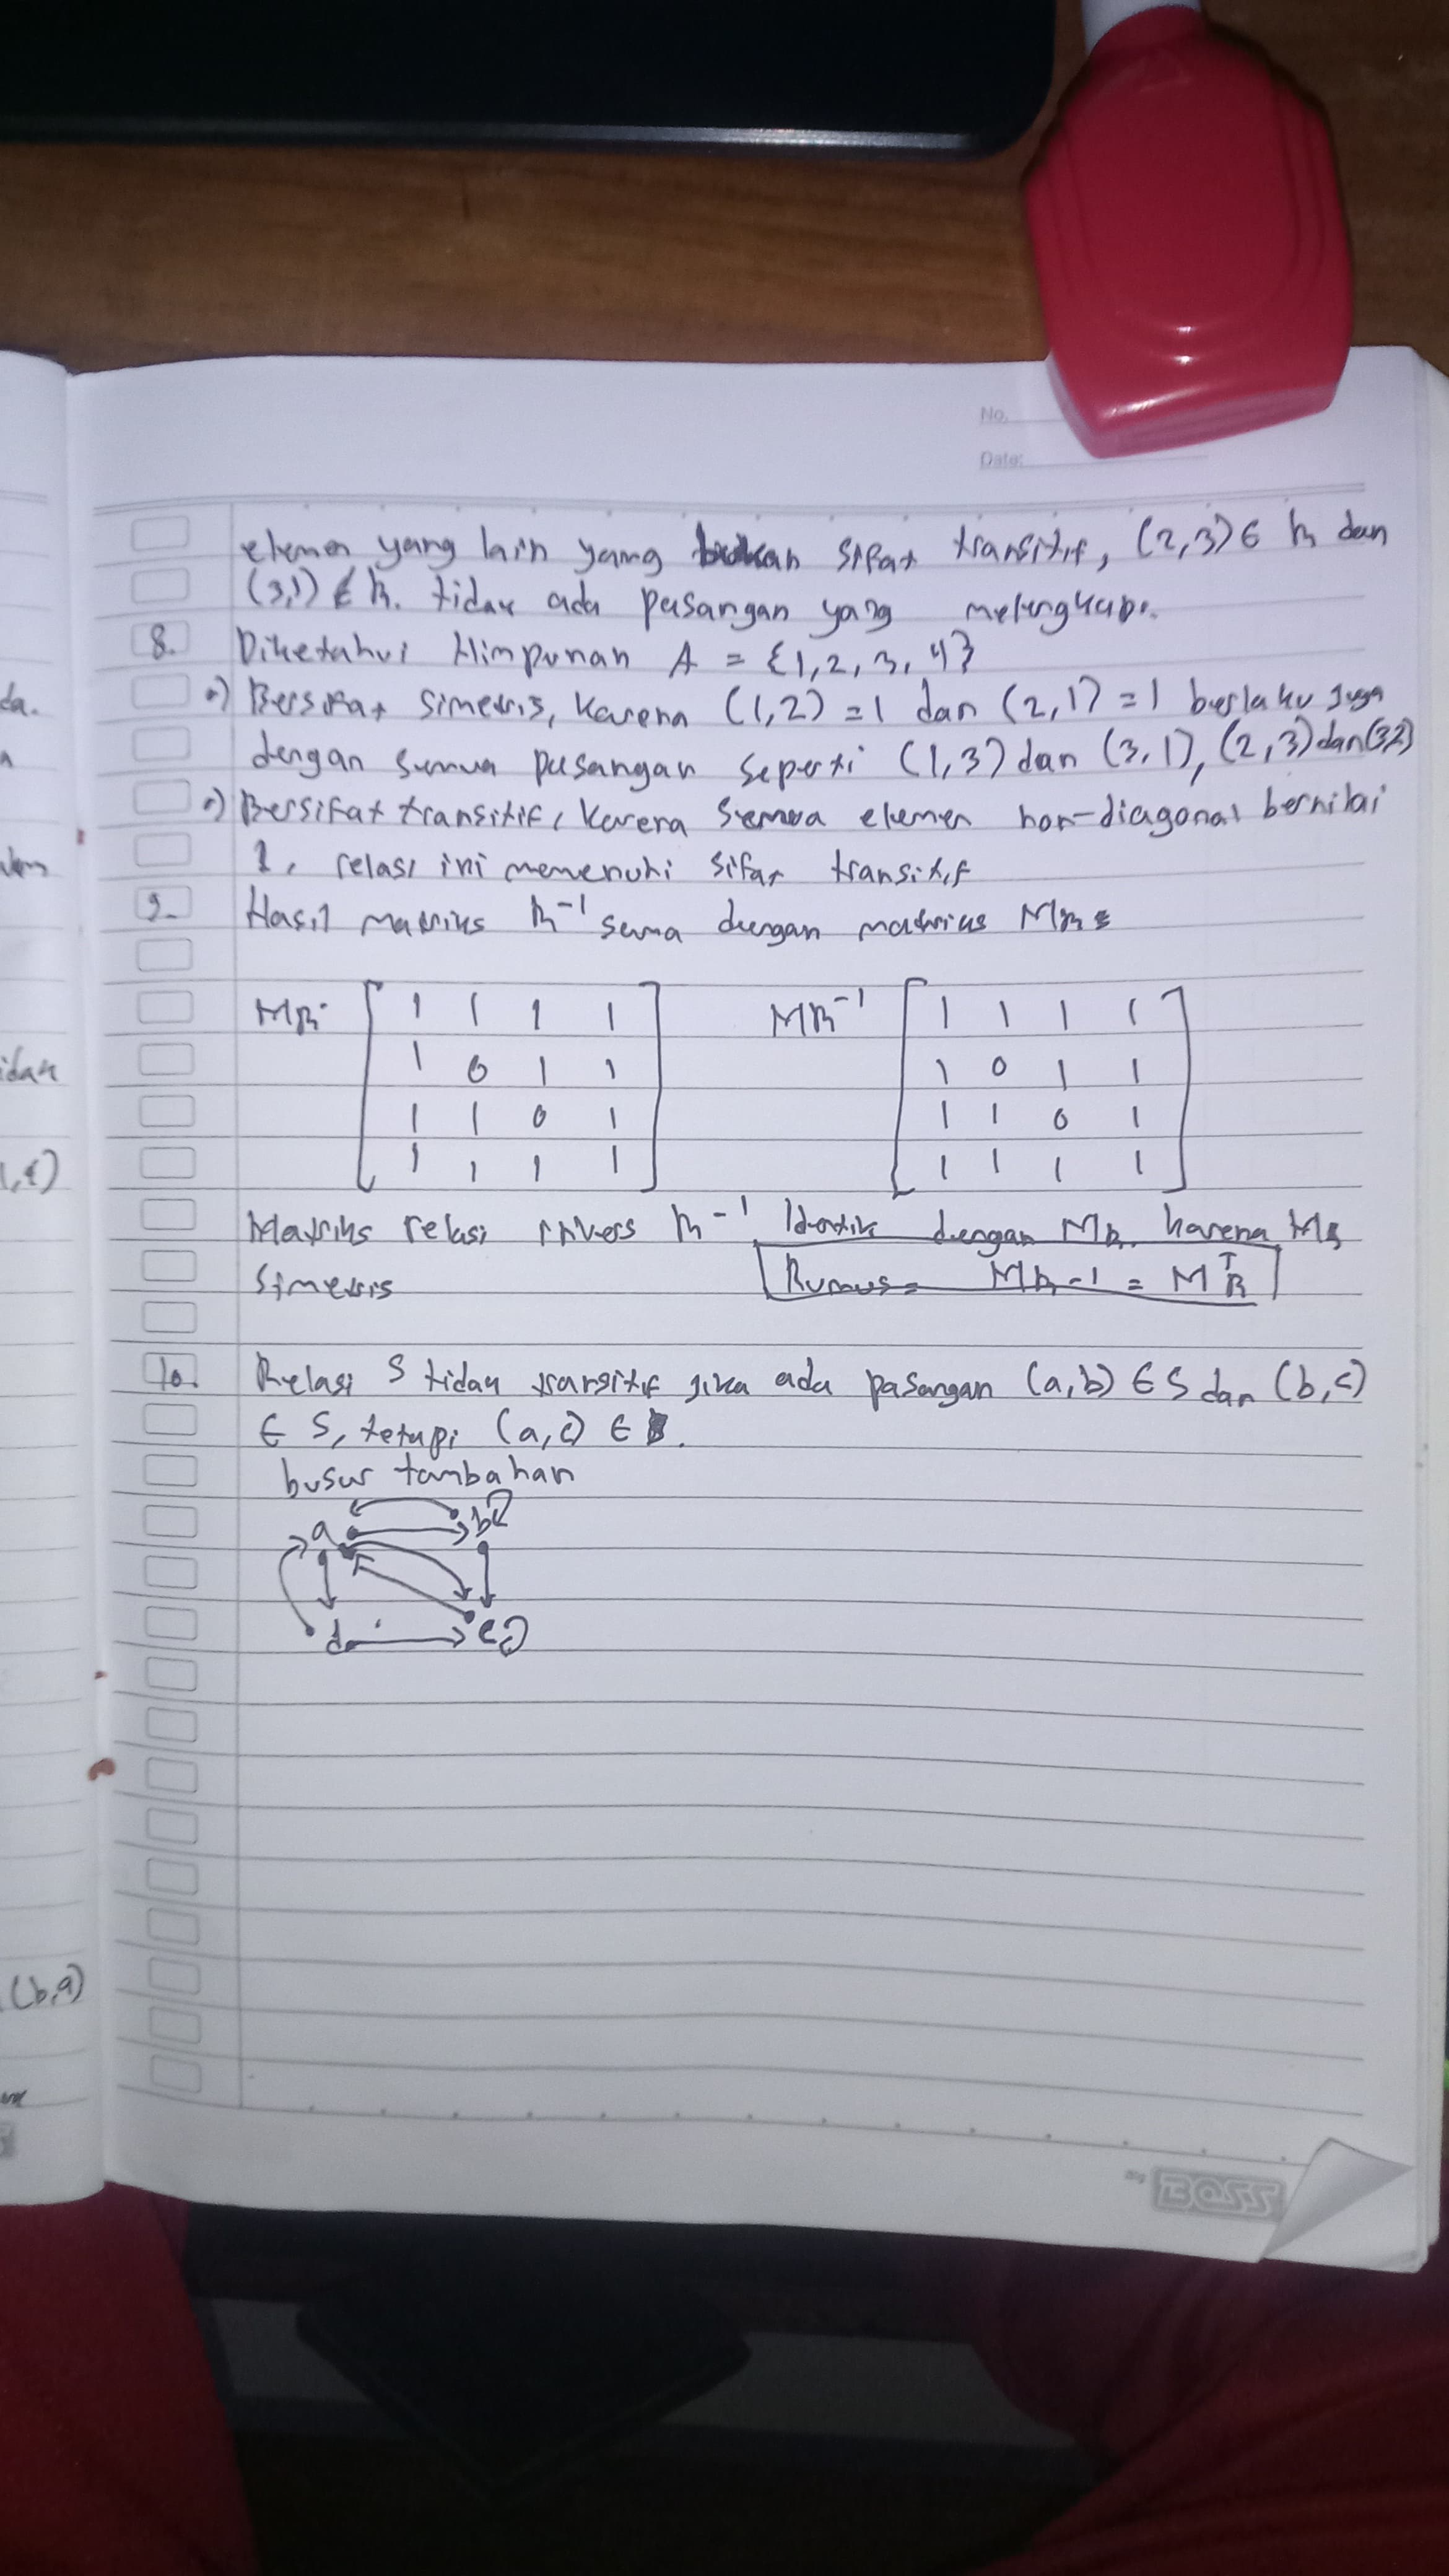 No.
Date:
elemen yang lain yang bukan sifat transitif, (2,3) ∈ R dan
(3,1) ∉ R. tidak ada pasangan yang melengkapi.
8. Diketahui Himpunan A = {1,2,3,4}
•) Bersifat simetris, karena (1,2) = 1 dan (2,1) = 1 berlaku juga
dengan semua pasangan seperti (1,3) dan (3,1), (2,3) dan (3,2)
•) Bersifat transitif, karena semua elemen non-diagonal bernilai
1, relasi ini memenuhi sifat transitif
9. Hasil matriks R⁻¹ sama dengan matriks MR =
MR = [ 1 1 1 1 MR⁻¹ [ 1 1 1 1 ]
1 0 1 1 1 0 1 1
1 1 0 1 1 1 0 1
1 1 1 1 1 1 1 1
Matriks relasi invers R⁻¹ Identik dengan MR. karena MR
simetris Rumus = MR-1 = MᵀR
10. Relasi S tidak transitif jika ada pasangan (a,b) ∈ S dan (b,c)
∈ S, tetapi (a,c) ∈
busur tambahan
a b
d c
by BOSS
da.
idak
(b,a)